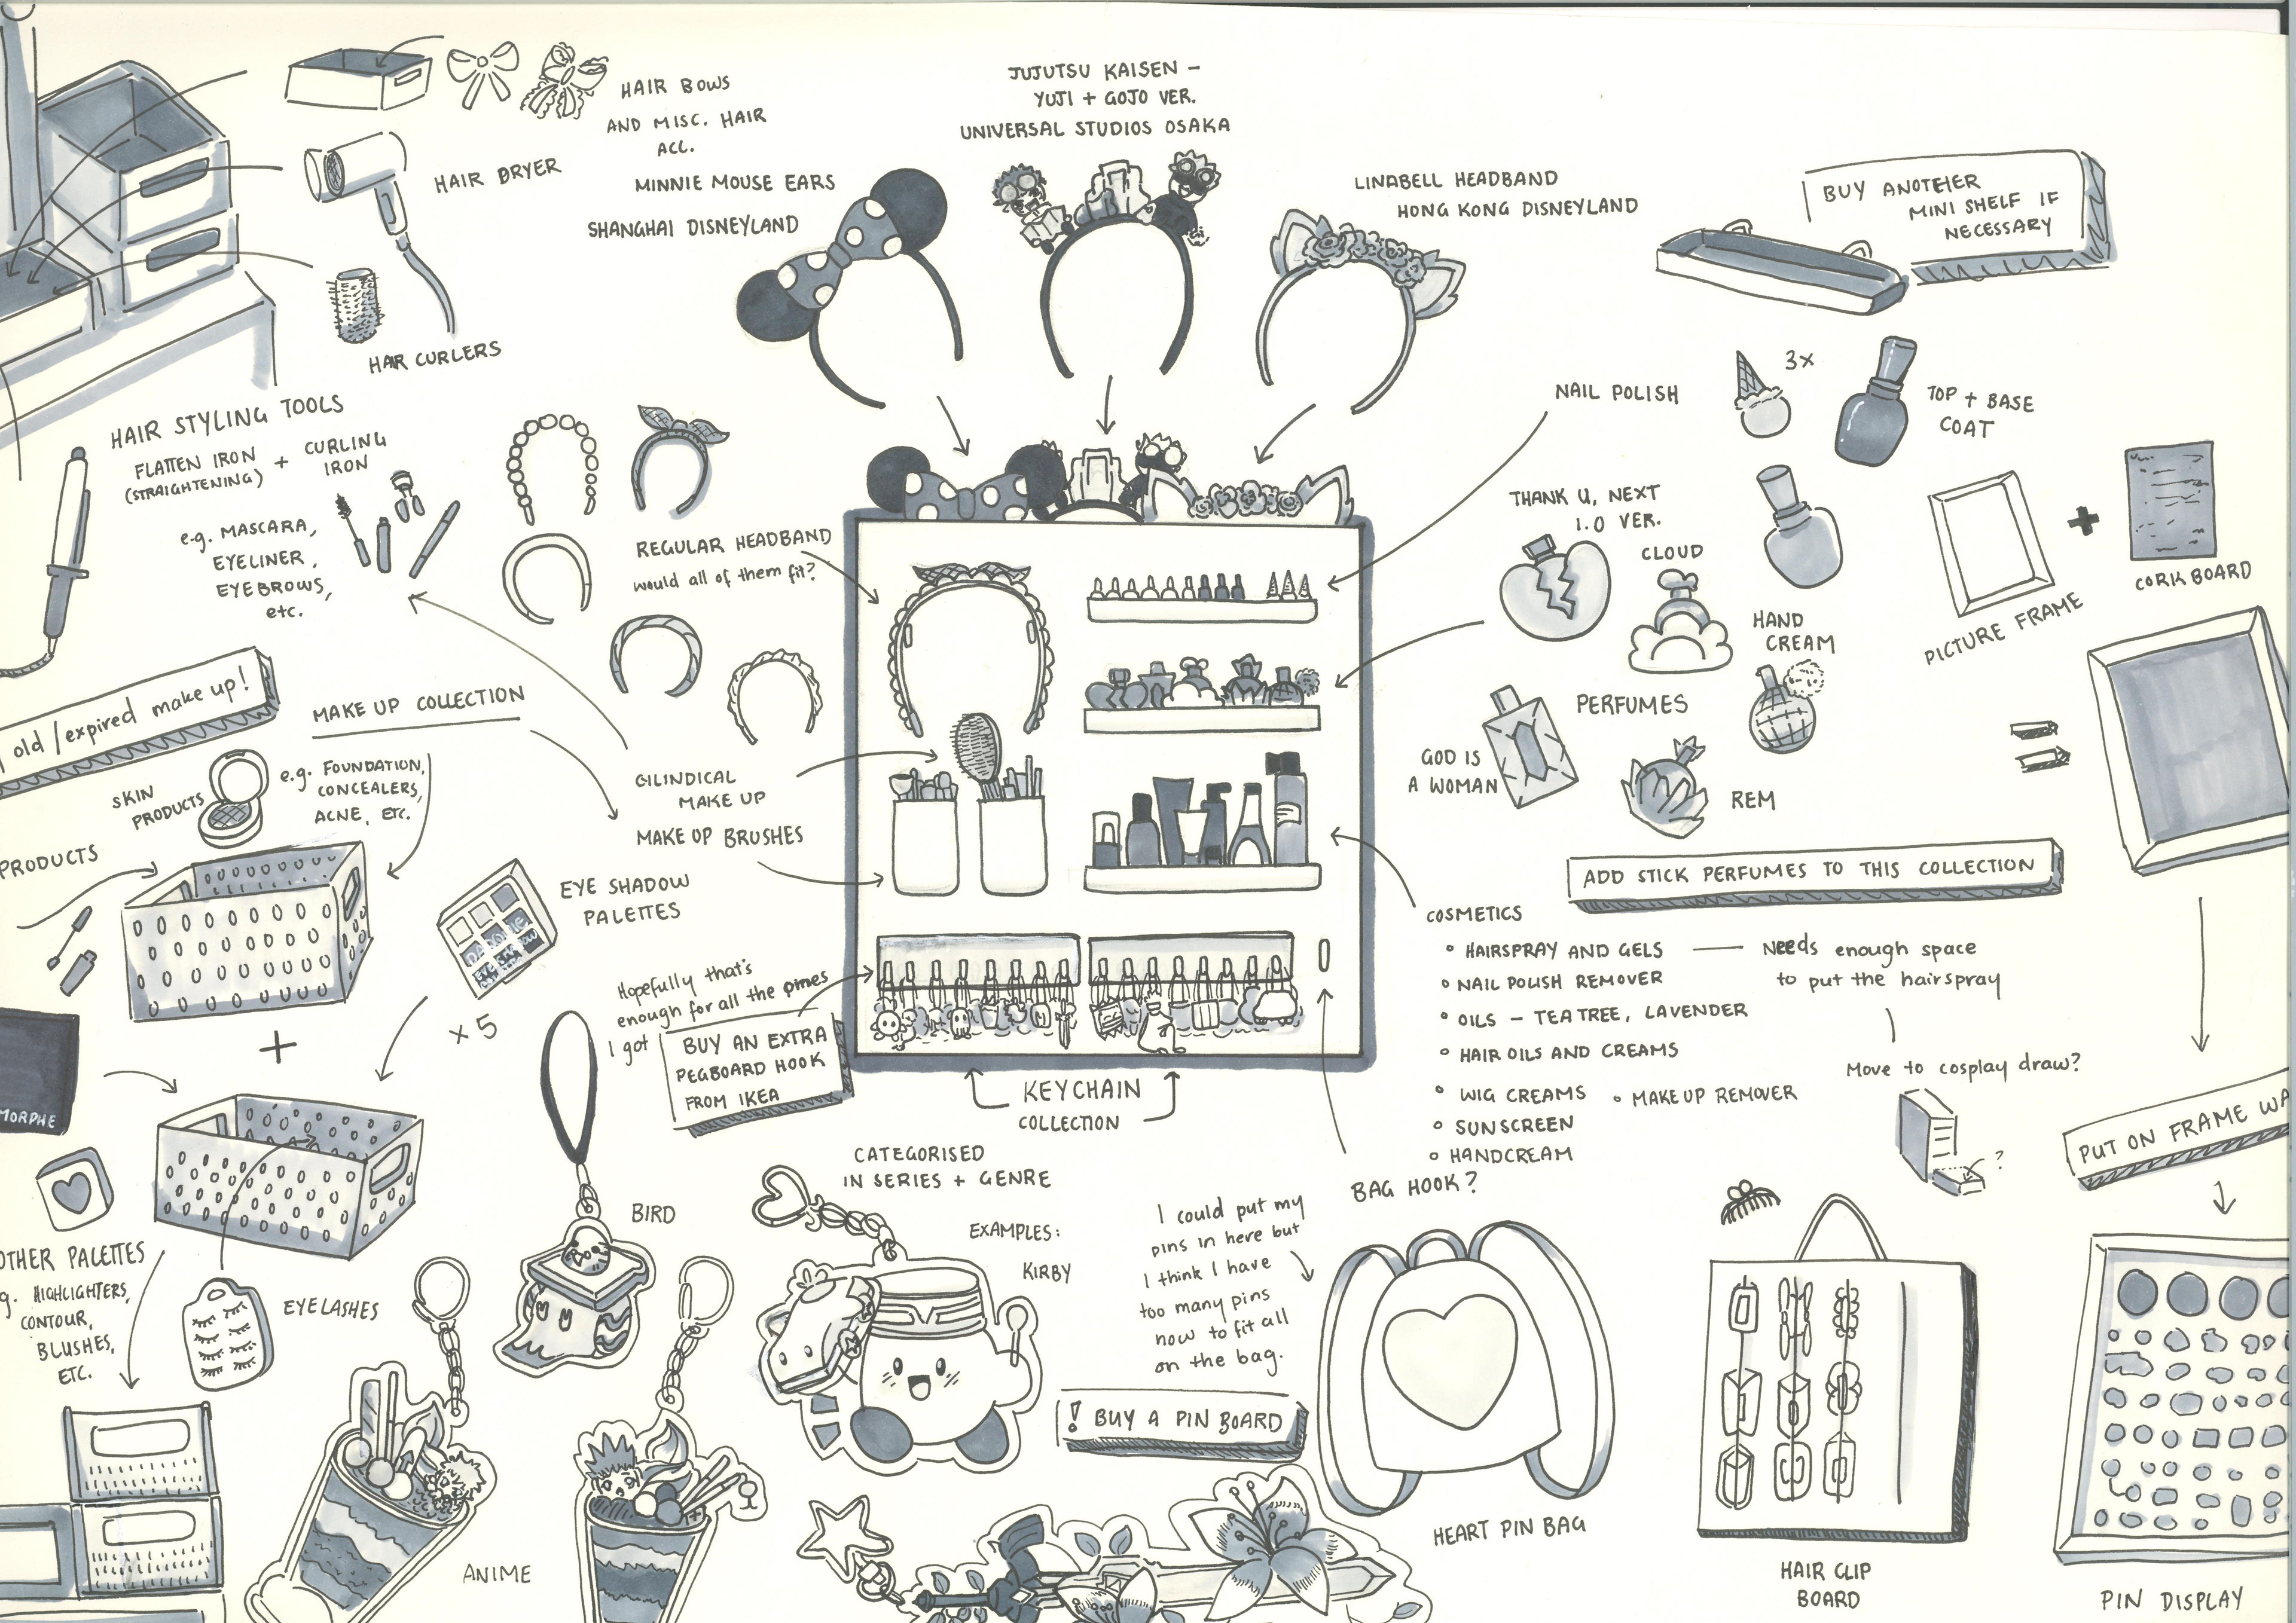 HAIR BOWS
AND MISC. HAIR
ACC.
HAIR DRYER
HAIR CURLERS
MINNIE MOUSE EARS
SHANGHAI DISNEYLAND
JUJUTSU KAISEN -
YUJI + GOJO VER.
UNIVERSAL STUDIOS OSAKA
LINABELL HEADBAND
HONG KONG DISNEYLAND
BUY ANOTHER
MINI SHELF IF
NECESSARY
HAIR STYLING TOOLS
FLATTEN IRON
(STRAIGHTENING)
+
CURLING
IRON
e.g. MASCARA,
EYELINER,
EYEBROWS,
etc.
REGULAR HEADBAND
would all of them fit?
NAIL POLISH
3x
TOP + BASE
COAT
THANK U, NEXT
1.0 VER.
CLOUD
HAND
CREAM
PERFUMES
GOD IS
A WOMAN
REM
PICTURE FRAME
+
CORK BOARD
=
old/expired make up!
MAKE UP COLLECTION
SKIN
PRODUCTS
e.g. FOUNDATION,
CONCEALERS,
ACNE, ETC.
PRODUCTS
CILINDICAL
MAKE UP
MAKE UP BRUSHES
EYE SHADOW
PALETTES
x 5
+
MORPHE
ADD STICK PERFUMES TO THIS COLLECTION
COSMETICS
• HAIRSPRAY AND GELS — Needs enough space
to put the hairspray
• NAIL POLISH REMOVER
• OILS - TEA TREE, LAVENDER
• HAIR OILS AND CREAMS
• WIG CREAMS
• MAKE UP REMOVER
• SUNSCREEN
• HANDCREAM
Move to cosplay draw?
?
PUT ON FRAME WA
Hopefully that's
enough for all the pines
I got
BUY AN EXTRA
PEGBOARD HOOK
FROM IKEA
KEYCHAIN
COLLECTION
CATEGORISED
IN SERIES + GENRE
EXAMPLES:
KIRBY
BIRD
ANIME
OTHER PALETTES
g. HIGHLIGHTERS,
CONTOUR,
BLUSHES,
ETC.
EYELASHES
BAG HOOK?
I could put my
pins in here but
I think I have
too many pins
now to fit all
on the bag.
! BUY A PIN BOARD
HEART PIN BAG
HAIR CLIP
BOARD
PIN DISPLAY